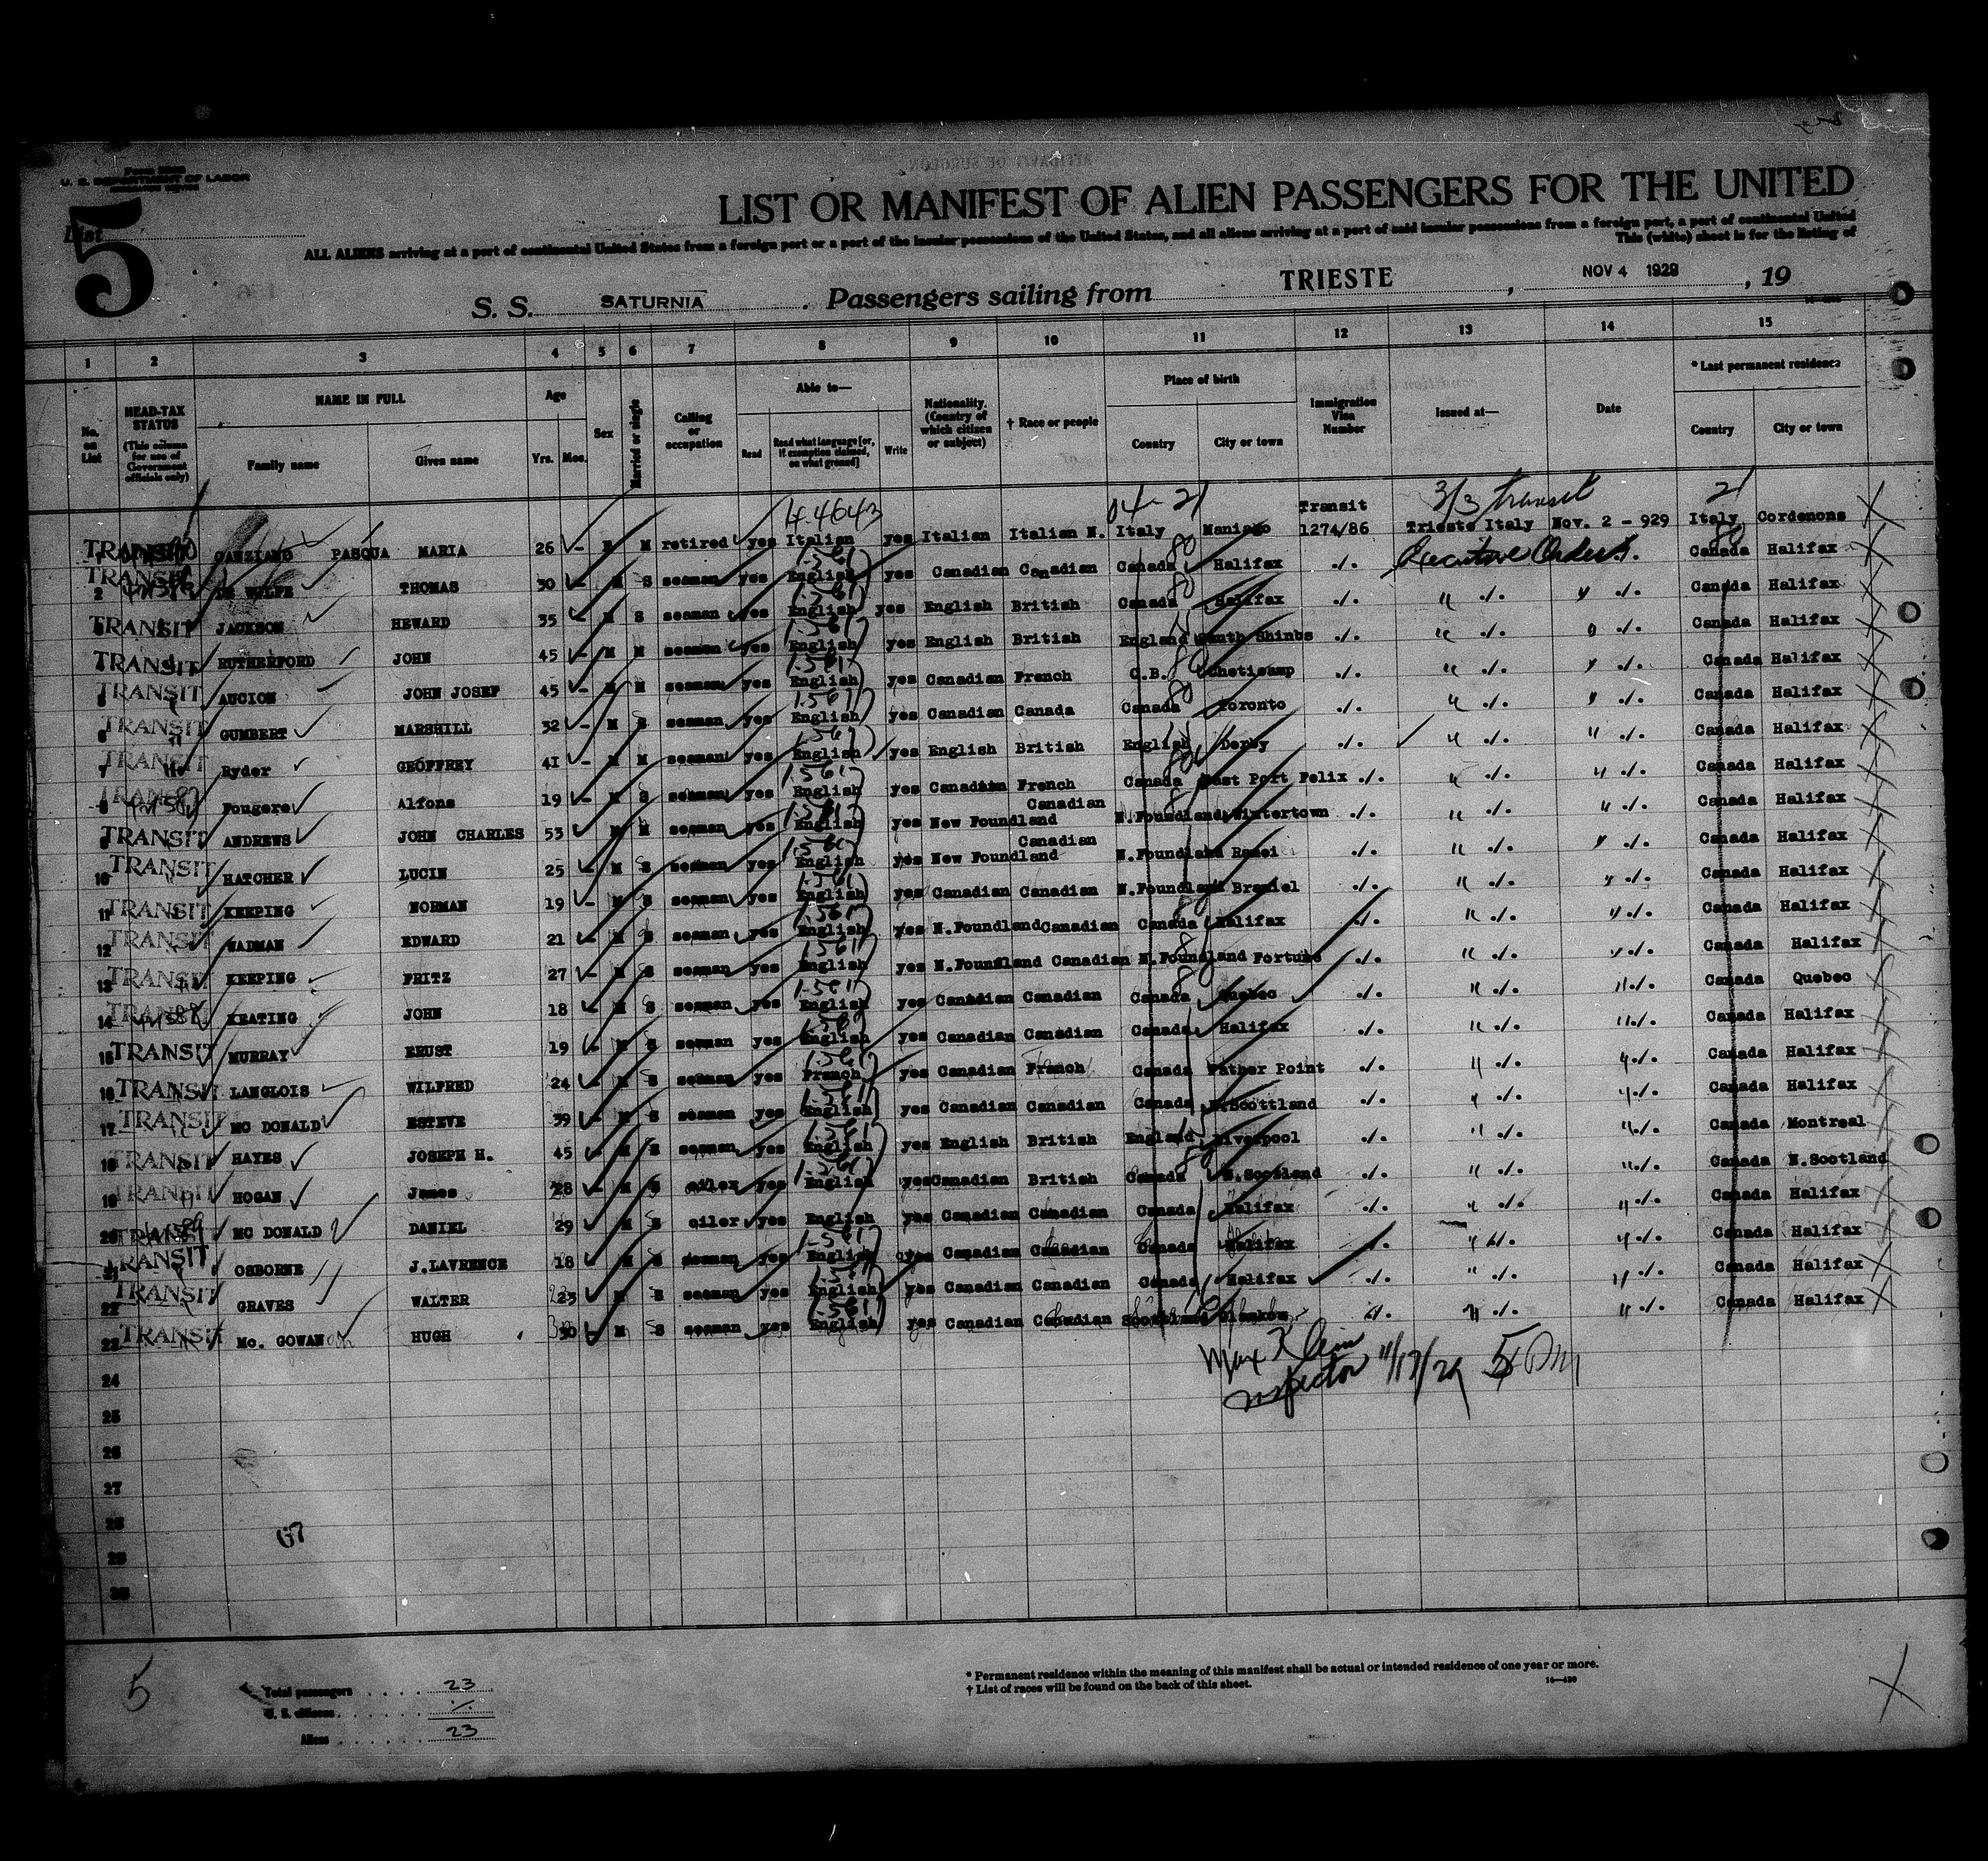 U. S. DEPARTMENT OF LABOR
List 5
LIST OR MANIFEST OF ALIEN PASSENGERS FOR THE UNITED
ALL ALIENS arriving at a port of continental United States from a foreign port or a port of the insular possessions of the United States, and all aliens arriving at a port of said insular possessions from a foreign port, a port of continental United
This (white) sheet is for the listing of
S. S. SATURNIA. Passengers sailing from TRIESTE, NOV 4 1929, 19
1 2 3 4 5 6 7 8 9 10 11 12 13 14 15
No. on List
HEAD-TAX STATUS (This column for use of Government officials only)
NAME IN FULL Family name Given name
Age Yrs. Mos.
Sex
Married or single
Calling or occupation
Able to— Read Read what language [or, if exemption claimed, on what ground] Write
Nationality. (Country of which citizen or subject)
† Race or people
Place of birth Country City or town
Immigration Visa Number
Issued at—
Date
* Last permanent residence Country City or town
4-4643 04-21 Transit 3/3 transit 21
TRANSIT PASQUA MARIA 26 M retired yes Italian yes Italian Italian N. Italy Maniago 1274/86 Trieste Italy Nov. 2 - 929 Italy Cordenons
2 TRANSIT DE WOLFE THOMAS 30 M S seaman yes English yes Canadian Canadian Canada Halifax ./. Executive Order Canada Halifax
TRANSIT JACKSON HEWARD 35 M S seaman yes English yes English British Canada Halifax ./. " ./. " ./. Canada Halifax
TRANSIT RUTHERFORD JOHN 45 M M seaman yes English yes English British England ./. " ./. " ./. Canada Halifax
TRANSIT AUCION JOHN JOSEF 45 M M seaman yes English yes Canadian French C.B. Cheticamp ./. " ./. " ./. Canada Halifax
6 TRANSIT GUMBERT MARSHILL 32 M S seaman yes English yes Canadian Canada Canada Toronto ./. " ./. " ./. Canada Halifax
7 TRANSIT Ryder GEOFFREY 41 M M seaman yes English yes English British English Derby ./. " ./. " ./. Canada Halifax
8 TRANSIT Fougere Alfons 19 M S seaman yes English yes Canadian French Canada East Port Felix ./. " ./. " ./. Canada Halifax
9 TRANSIT ANDREWS JOHN CHARLES 53 M M seaman yes English yes New Foundland Canadian N.Foundland Wintertown ./. " ./. " ./. Canada Halifax
10 TRANSIT HATCHER LUCIN 25 M S seaman yes English yes New Foundland Canadian N.Foundland Ramei ./. " ./. " ./. Canada Halifax
11 TRANSIT KEEPING NORMAN 19 M S seaman yes English yes Canadian Canadian N.Foundland ./. " ./. " ./. Canada Halifax
12 TRANSIT WADMAN EDWARD 21 M S seaman yes English yes N.Foundland Canadian Canada Halifax ./. " ./. " ./. Canada Halifax
13 TRANSIT KEEPING FRITZ 27 M S seaman yes English yes N.Foundland Canadian N.Foundland Fortune ./. " ./. " ./. Canada Halifax
14 TRANSIT KEATING JOHN 18 M S seaman yes English yes Canadian Canadian Canada Quebec ./. " ./. " ./. Canada Quebec
15 TRANSIT MURRAY ERUST 19 M S seaman yes English yes Canadian Canadian Canada Halifax ./. " ./. " ./. Canada Halifax
16 TRANSIT LANGLOIS WILFRED 24 M S seaman yes French yes Canadian French Canada Father Point ./. " ./. " ./. Canada Halifax
17 TRANSIT MC DONALD ESTEVE 39 M S seaman yes English yes Canadian Canadian Canada N.Scottland ./. " ./. " ./. Canada Halifax
18 TRANSIT HAYES JOSEPH H. 45 M S seaman yes English yes English British England Liverpool ./. " ./. " ./. Canada Montreal
19 TRANSIT HOGAN James 28 M S oiler yes English yes Canadian British Canada N.Scotland ./. " ./. " ./. Canada N.Scotland
20 TRANSIT MC DONALD DANIEL 29 M S oiler yes English yes Canadian Canadian Canada Halifax ./. " ./. " ./. Canada Halifax
21 TRANSIT OSBORNE J.LAVRENCE 18 M S seaman yes English yes Canadian Canadian Canada Halifax ./. " ./. " ./. Canada Halifax
22 TRANSIT GRAVES WALTER 23 M S seaman yes English yes Canadian Canadian Canada Halifax ./. " ./. " ./. Canada Halifax
23 TRANSIT Mc. GOWAN HUGH 30 M S seaman yes English yes Canadian Canadian Scotland ./. " ./. " ./. Canada Halifax
24 Max Klein
Inspector 11/17/29 5 PM
25
26
27
28
29
30
5
Total passengers 23
U. S. citizens ./.
Aliens 23
* Permanent residence within the meaning of this manifest shall be actual or intended residence of one year or more.
† List of races will be found on the back of this sheet.